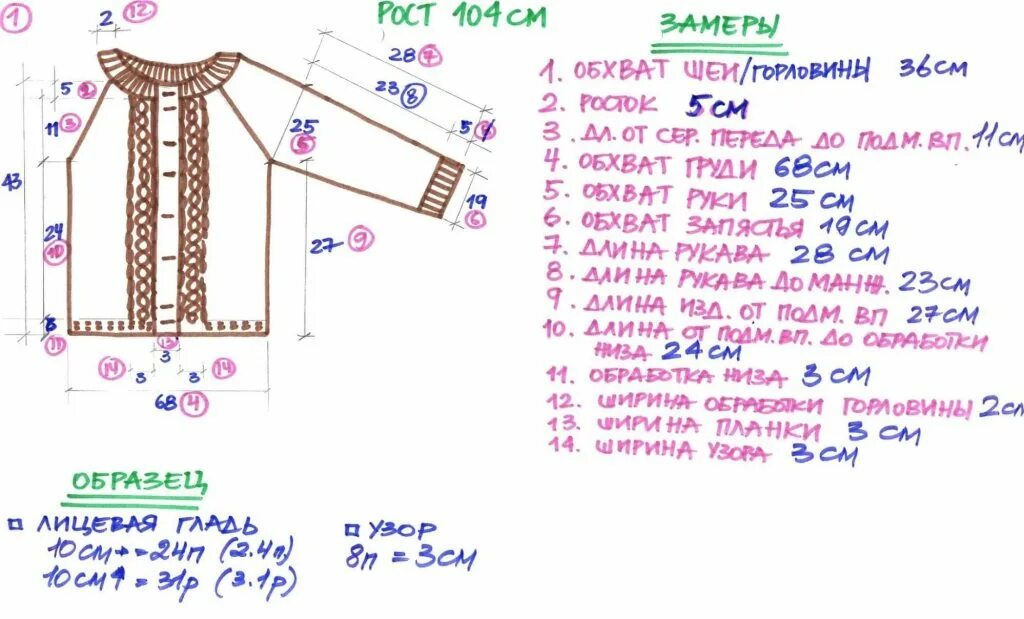 1
2 12
РОСТ 104 СМ
ЗАМЕРЫ
28 7
23 8
5 2
11 3
25
5
5
43
19
6
24
10
27 9
11
13
3
14 3 3 14
68 4
1. ОБХВАТ ШЕИ/ГОРЛОВИНЫ 36СМ
2. РОСТОК 5СМ
3. ДЛ. ОТ СЕР. ПЕРЕДА ДО ПОДМ. ВП. 11СМ
4. ОБХВАТ ГРУДИ 68СМ
5. ОБХВАТ РУКИ 25 СМ
6. ОБХВАТ ЗАПЯСТЬЯ 19 СМ
7. ДЛИНА РУКАВА 28 СМ
8. ДЛИНА РУКАВА ДО МАНЖ. 23СМ
9. ДЛИНА ИЗД. ОТ ПОДМ. ВП 27СМ
10. ДЛИНА ОТ ПОДМ. ВП. ДО ОБРАБОТКИ
НИЗА 24 СМ
11. ОБРАБОТКА НИЗА 3 СМ
12. ШИРИНА ОБРАБОТКИ ГОРЛОВИНЫ 2СМ
13. ШИРИНА ПЛАНКИ 3 СМ
14. ШИРИНА УЗОРА 3 СМ
ОБРАЗЕЦ
ЛИЦЕВАЯ ГЛАДЬ
10СМ → = 24П (2.4П)
10СМ ↑ = 31Р (3.1Р)
УЗОР
8П = 3СМ